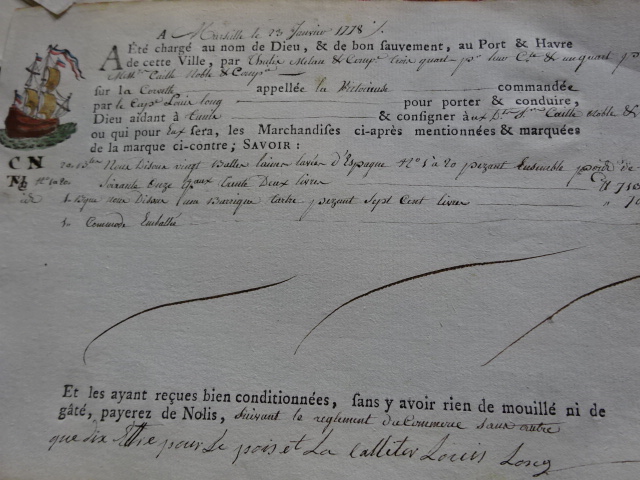 A Marseille le 23 Janvier 1778
A Été chargé au nom de Dieu, & de bon sauvement, au Port & Havre
de cette Ville, par Melan & Comp^e trois quart p^r leur C^te & un quart p^r
Caille Noble & Comp^e
sur la Corvette appellée la Victorieuse commandée
par le Cap^ne Louis Loncq pour porter & conduire,
Dieu aidant à & consigner à Caille Noble &
ou qui pour Eux sera, les Marchandises ci-après mentionnées & marquées
de la marque ci-contre; SAVOIR :
C N Nous Disons vingt Balles laines d'Espagne N° 1 à 20 pezant Ensemble poids de
Soixante Onze q^aux trente Deux livres
1 Bque nous Disons une Barrique tartre pezant Sept Cent livres
1 Commode Emballée
Et les ayant reçues bien conditionnées, sans y avoir rien de mouillé ni de
gâté, payerez de Nolis, suivant le reglement du Commerce sans autre
que dix Etre pour Le pois et La Calleter Louis Loncq